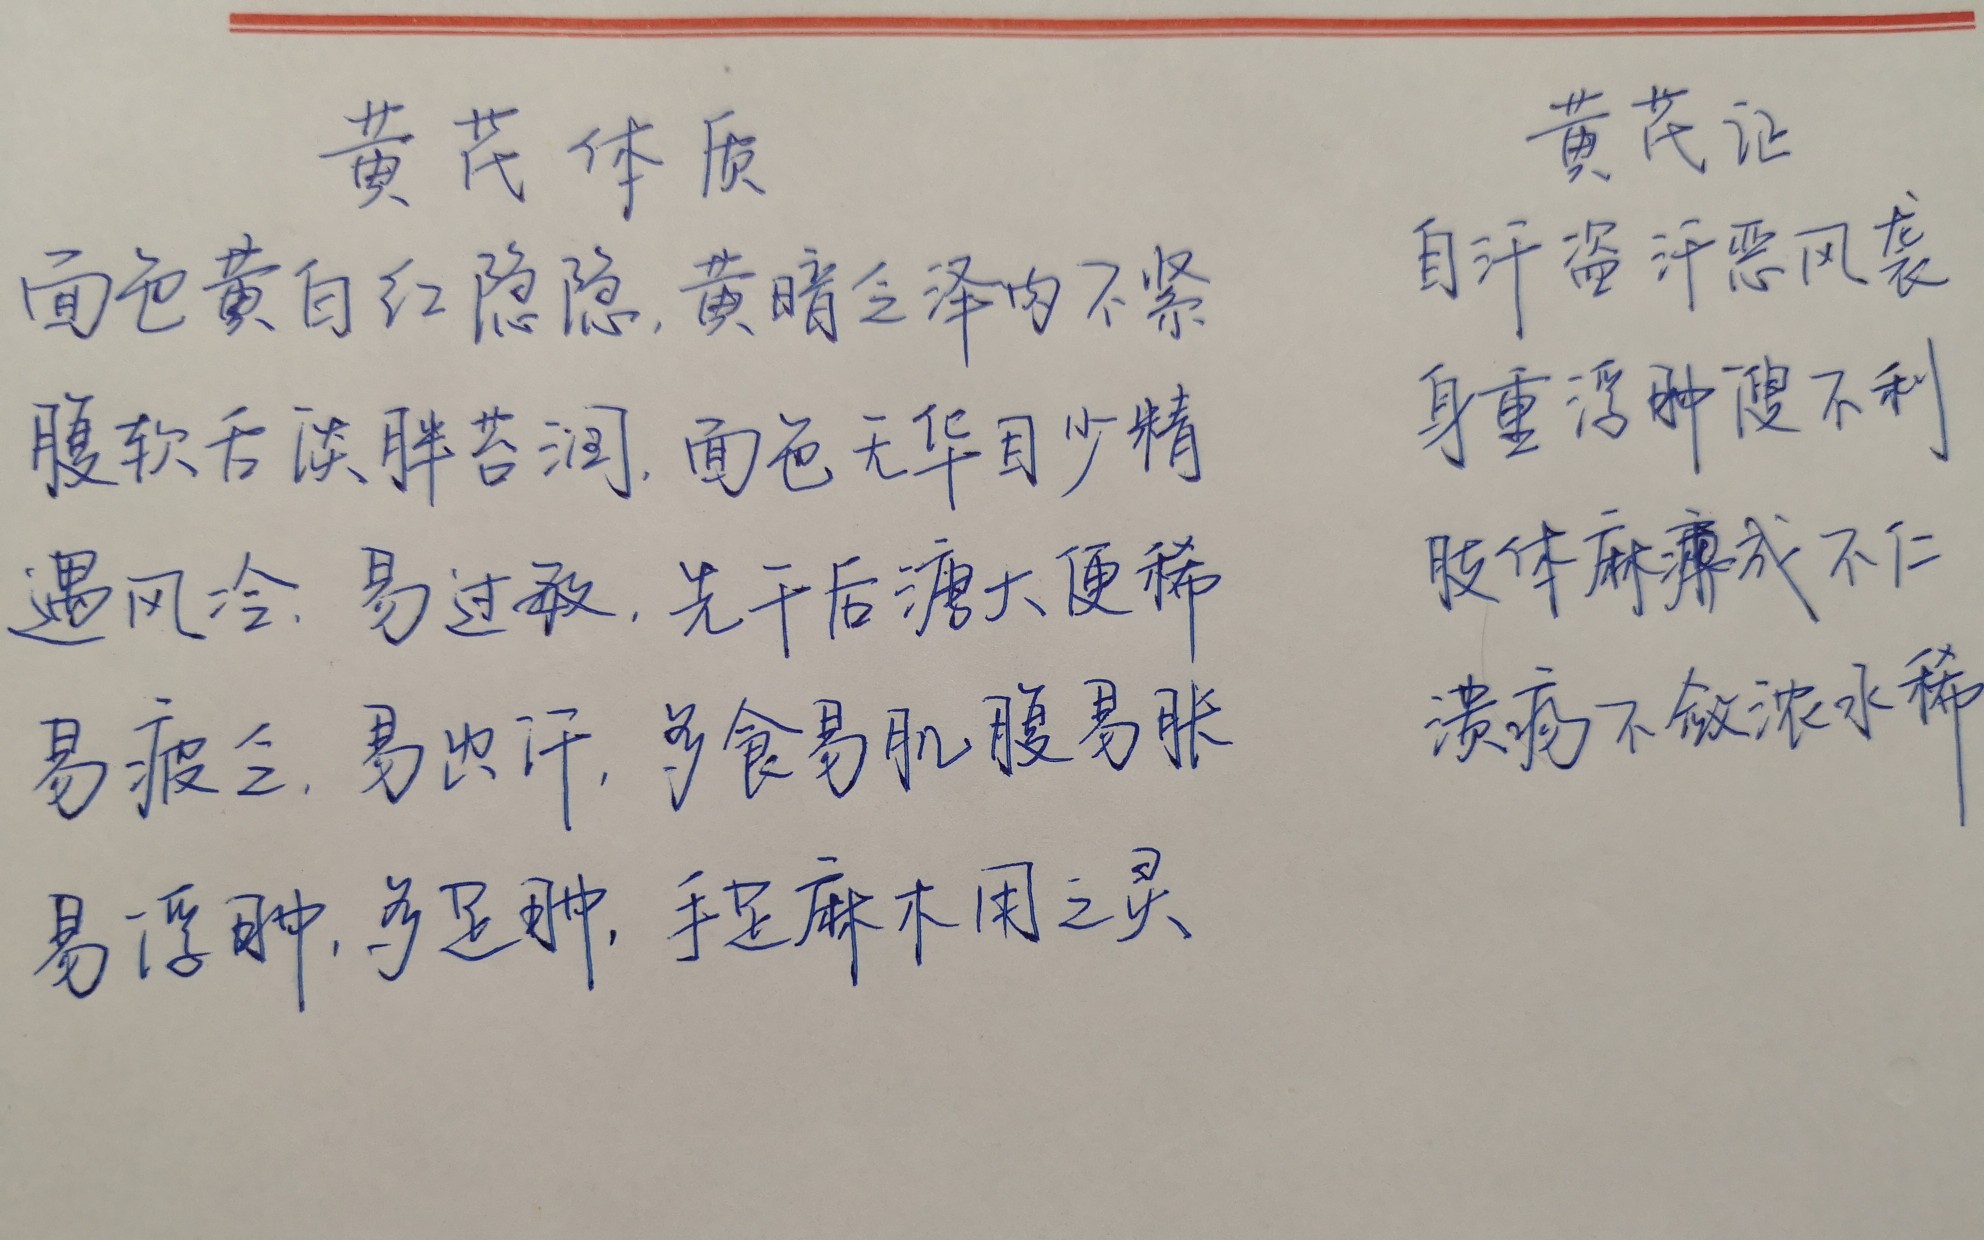 黄芪体质
面色黄白红隐隐，黄暗乏泽肉不紧
腹软舌淡胖苔润，面色无华目少精
遇风冷，易过敏，先干后溏大便稀
易疲乏，易出汗，多食易肌腹易胀
易浮肿，多足肿，手足麻木用之灵
黄芪证
自汗盗汗恶风袭
身重浮肿溲不利
肢体麻痹或不仁
溃疡不敛浓水稀